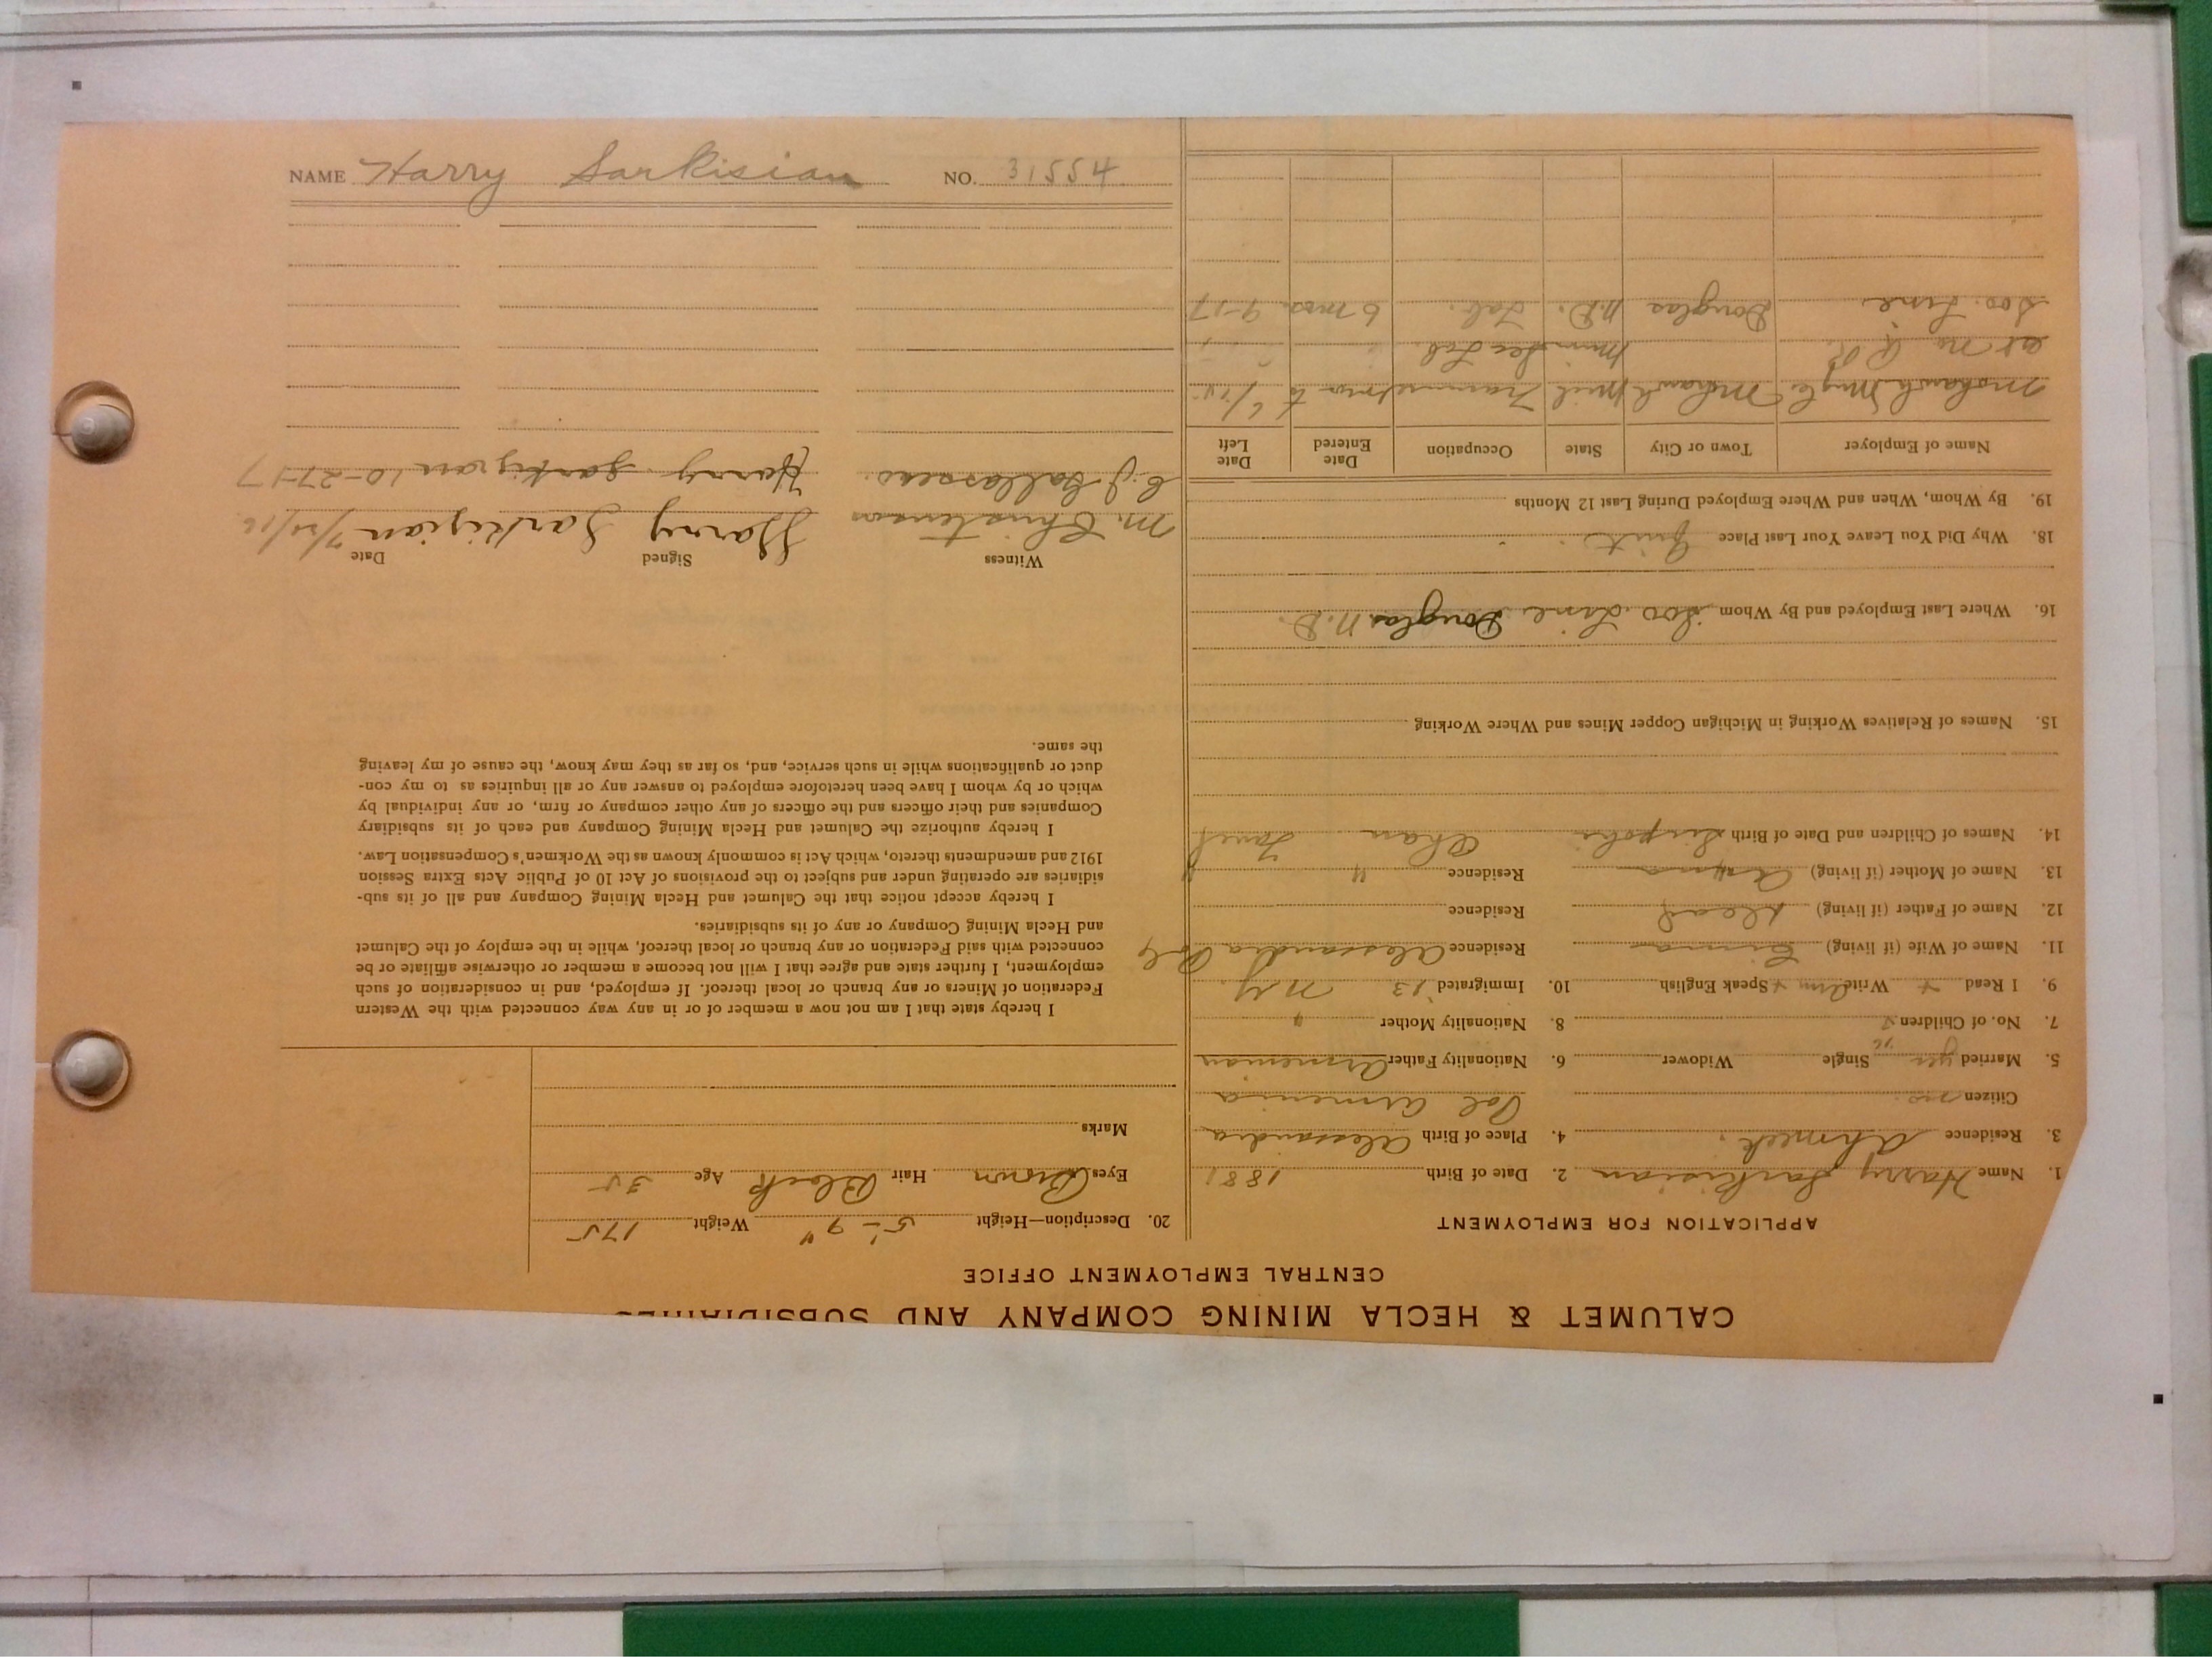 NAME Harry Sarkisian NO. 31554
CALUMET & HECLA MINING COMPANY AND SUBSIDIARIES
CENTRAL EMPLOYMENT OFFICE
APPLICATION FOR EMPLOYMENT
1. Name Harry Sarkisian 2. Date of Birth 1881
3. Residence Ahmeek. 4. Place of Birth Alessandra
Citizen no. Pol Armenia
5. Married yes Single Widower 6. Nationality Father Armenian
7. No. of Children 8. Nationality Mother "
9. I Read + Write Arm + Speak English 10. Immigrated '13 N.Y.
11. Name of Wife (if living) Residence Alessandra Pol
12. Name of Father (if living) dead Residence
13. Name of Mother (if living) Residence "
14. Names of Children and Date of Birth
15. Names of Relatives Working in Michigan Copper Mines and Where Working
16. Where Last Employed and By Whom Soo Line Douglas N.D.
18. Why Did You Leave Your Last Place Quit
19. By Whom, When and Where Employed During Last 12 Months
Name of Employer Town or City State Occupation Date Entered Date Left
Mohawk Mng Co Mohawk Mich Trammer
Gt No R.R. Minn Sec Lab.
Soo. Line. Douglas N.D. Lab. 6 mos. 9-17
20. Description—Height 5'-9" Weight 175
Eyes Brown Hair Black Age 35
Marks
I hereby state that I am not now a member of or in any way connected with the Western
Federation of Miners or any branch or local thereof. If employed, and in consideration of such
employment, I further state and agree that I will not become a member or otherwise affiliate or be
connected with said Federation or any branch or local thereof, while in the employ of the Calumet
and Hecla Mining Company or any of its subsidiaries.
I hereby accept notice that the Calumet and Hecla Mining Company and all of its sub-
sidiaries are operating under and subject to the provisions of Act 10 of Public Acts Extra Session
1912 and amendments thereto, which Act is commonly known as the Workmen's Compensation Law.
I hereby authorize the Calumet and Hecla Mining Company and each of its subsidiary
Companies and their officers and the officers of any other company or firm, or any individual by
which or by whom I have been heretofore employed to answer any or all inquiries as to my con-
duct or qualifications while in such service, and, so far as they may know, the cause of my leaving
the same.
Witness Signed Date
M. Christenson Harry Sarkizian 7/20/16
Harry Sarkizian 10-27-17